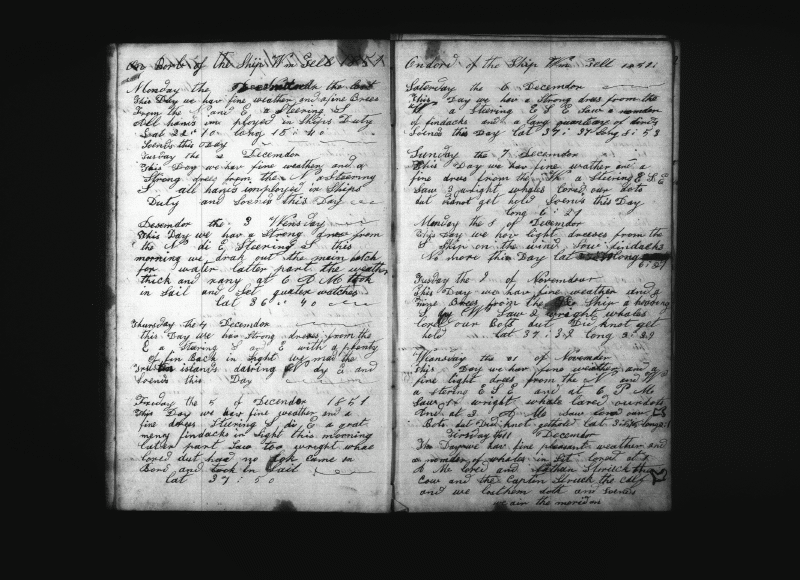 On Bord of the Ship Wm Tell 1851
Monday the
This Day we hav fine weather and a fine Brees
From the and E a Steering S
All hands imployed in Ships Duty
Lat 22 : 10 long 15 : 40
Soends this Day
Tuesday the 2 Decemdor
This Day we hav fine weather and a
Strong drees from the N a Steering
S all hands imployed in Ships
Duty and Soends this Day
Desemdor the 3 Wensday
this Day we hav a Strong drees from
the N di E Steering S this
morning we drok out the main hatch
for water latter part the weather
thick and rany at 6 P M took
in Sail and Sot quater watches
lat 36 : 40
Thursday the 4 Decemdor
this Day we hav Strong drees from the
E a Steering S and E with a plenty
of fin Back in Sight we mad the
islands daring N dy E and
Soends this Day
Friday the 5 of Decemdor 1851
this Day we hav fine weather and a
fine drees Steering S di E a goat
meny findacks in Sight this morning
latter part Saw too wright whae
lored dut had no look came on
Bord and took in Sail
lat 37 : 50
Ondord of the Ship Wm Tell 1851
Saturday the 6 Decemdor
This Day we hav a Strong drees from the
a Steering E S E Saw a numdor
of findacks and a larg quantity of dirds
Soends this Day lat 37 : 37 long 8 : 53
Sunday the 7 Decemdor
this Day we hav fine weather and a
fine drees from the a Steering E S E
Saw 3 wright whales lored our dots
dut cannot get hold Soends this Day
long 6 : 27
Monday the 8 of Decemdor
this Day we hav light dreeses from the
S Ship on the wind Sow findacks
No more this Day lat long
6 : 27
Tusday the 9 of Novemdour
this Day we hav fine weather and a
fine Brees from the Ship a heding
S by W Saw 2 wright whales
lored our Bots but Die knot get
hold lat 37 : 32 long 3 : 33
Wiansday the of Novemder
this Day we hav fine weather and a
fine light drees from the N and W
a stering E S E and at 6 P M
Saw a wright whale lared our dots
and at 3 A M Saw
Bots dut Did knot get hold lat long
Thirsday the 11 Decemdor
The Day we hav fine pleasent weather and
a number of whales in Sit lored at 8
A M lored and Nathan Struck the
Cow and the Capten Struck the calf
and we lost them doth and Soends
we air the meredon